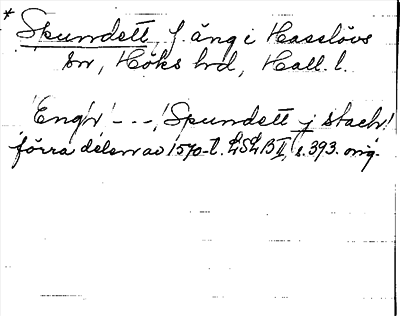 * Spundett, f. äng i Hasslövs
sn, Höks hd, Hall. l.
'Engh' - - -, 'Spundett j stach'
förra delen av 1570-t. LSLB II, s. 393. orig.